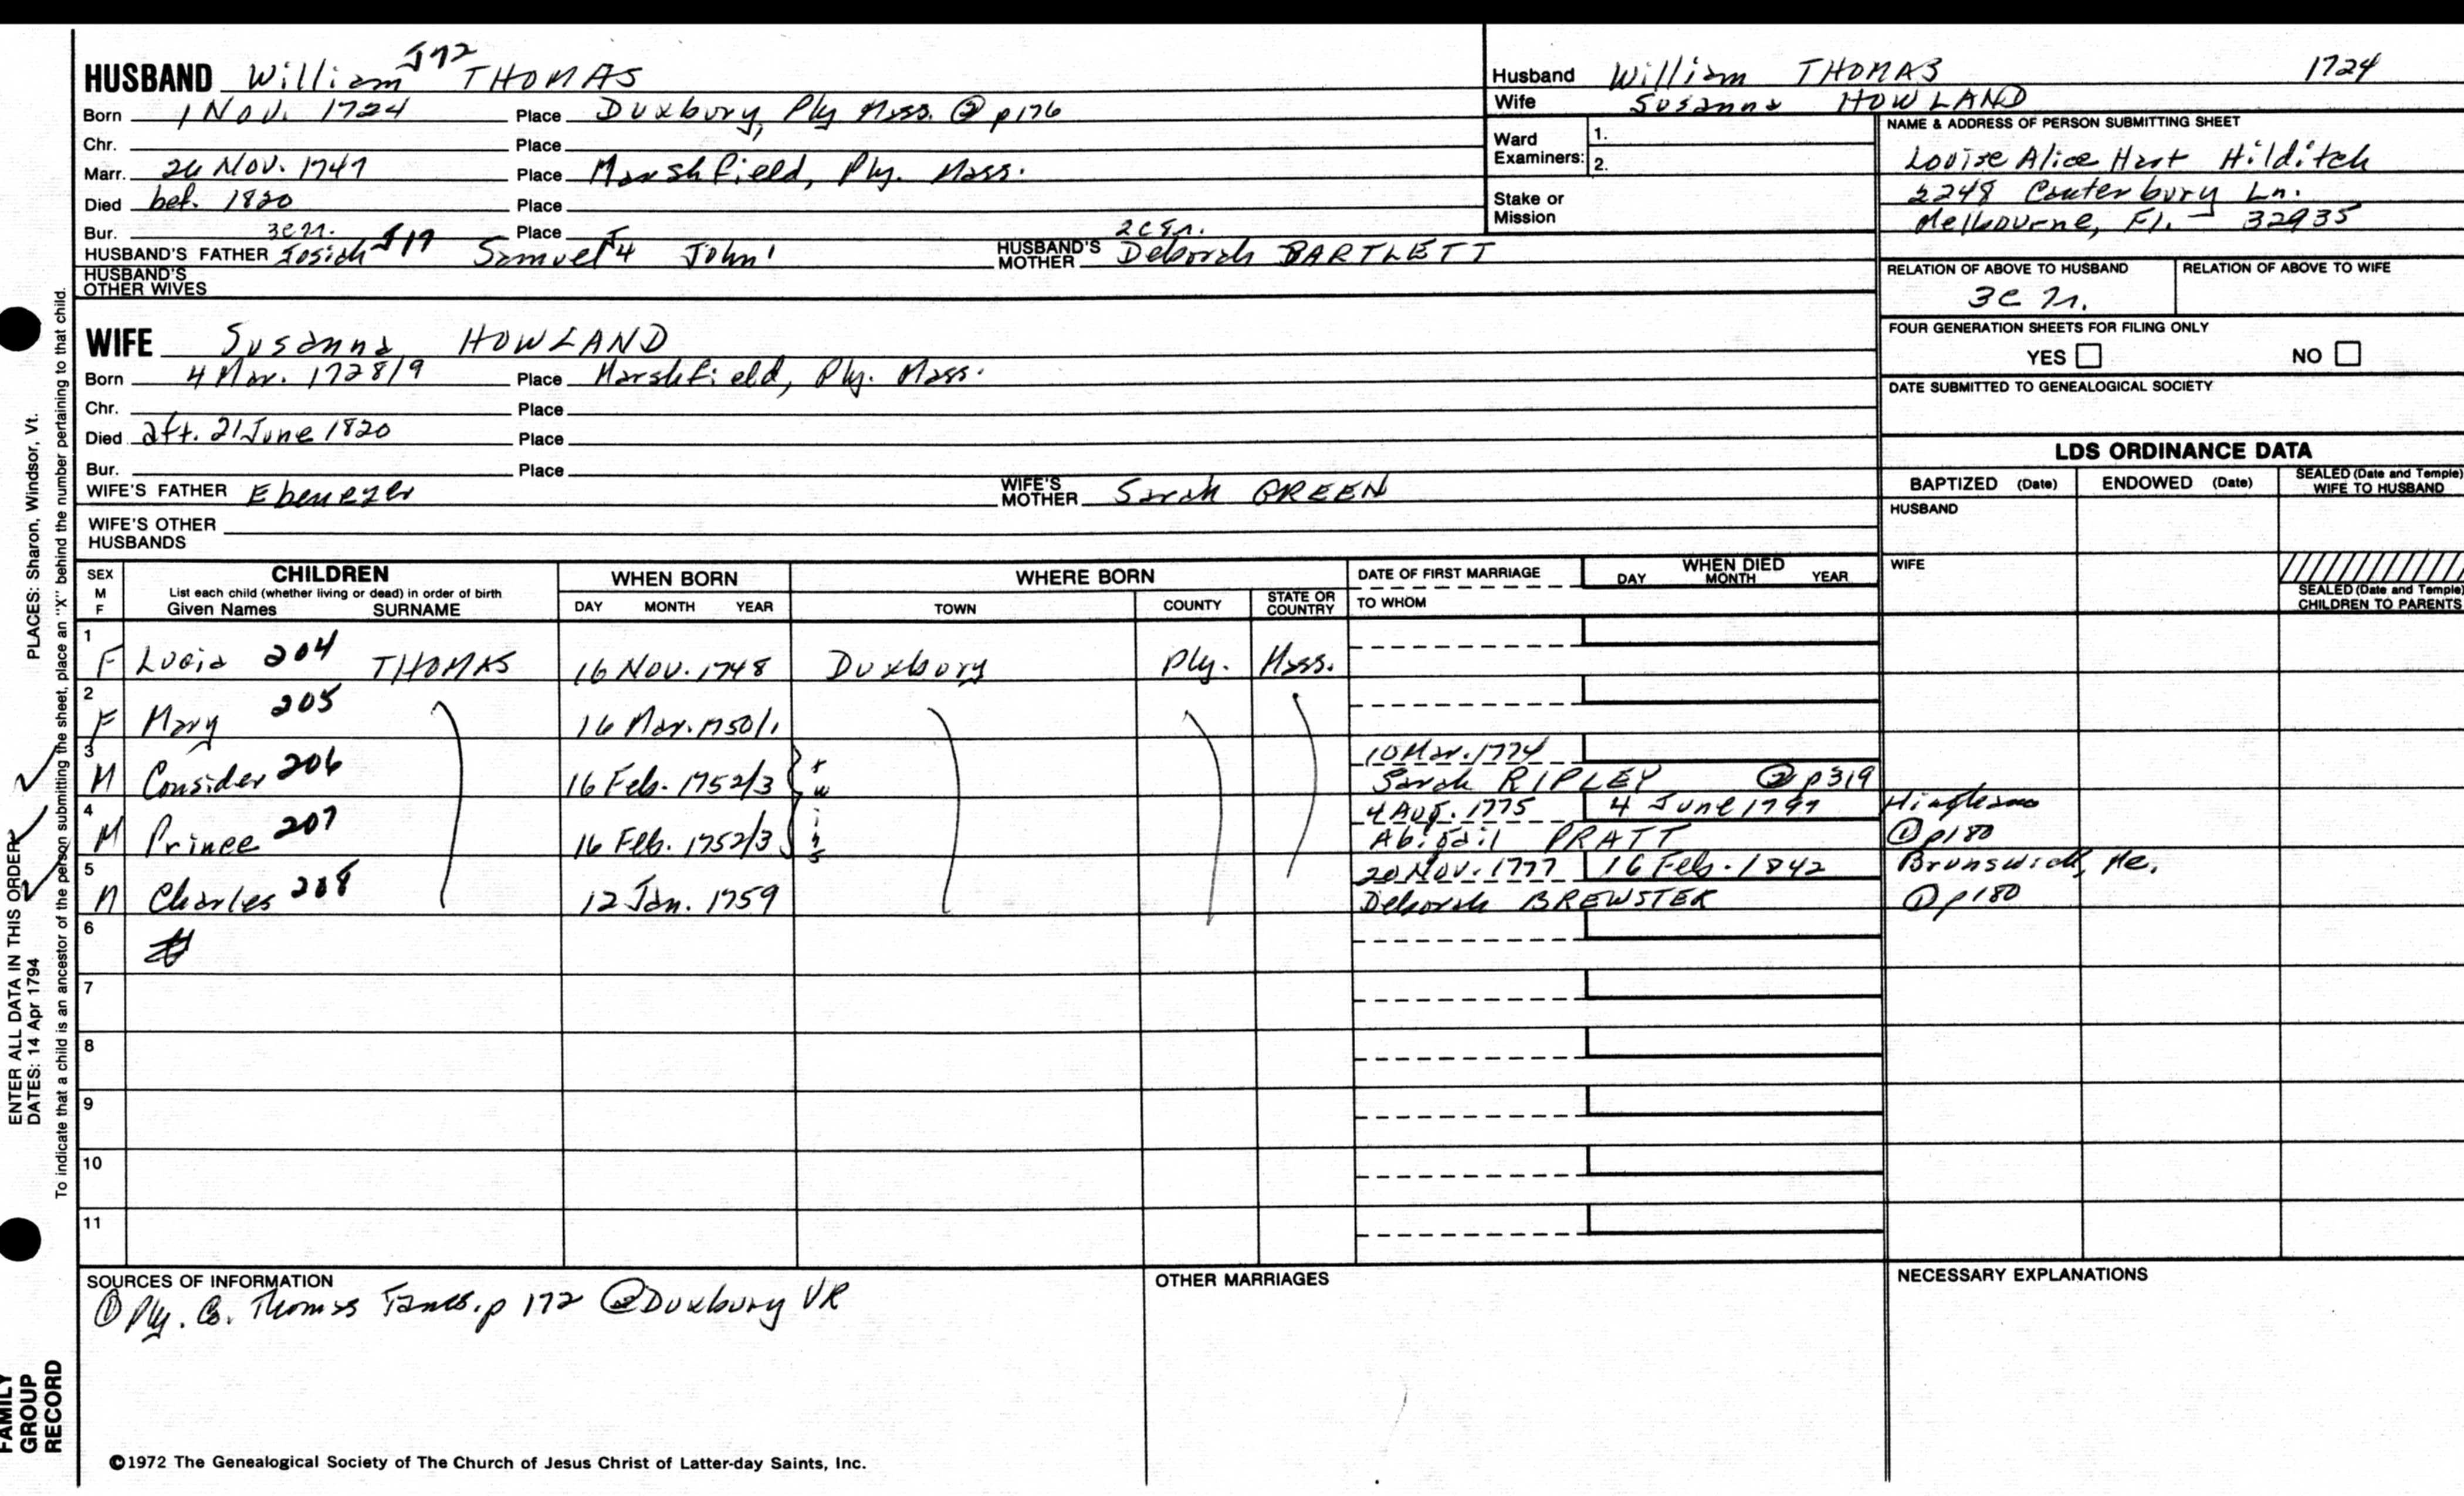 HUSBAND William J72 THOMAS
Born 1 Nov. 1724 Place Duxbury, Ply Mass. ② p176
Chr. Place
Marr. 26 Nov. 1747 Place Marshfield, Ply. Mass.
Died bef. 1820 Place
Bur. Place
3c n. 2c5n.
HUSBAND'S FATHER Josiah J19 Samuel J4 John 1 HUSBAND'S MOTHER Deborah BARTLETT
HUSBAND'S OTHER WIVES
WIFE Susanna HOWLAND
Born 4 Mar. 1728/9 Place Marshfield, Ply. Mass.
Chr. Place
Died aft. 21 June 1820 Place
Bur. Place
WIFE'S FATHER Ebenezer WIFE'S MOTHER Sarah GREEN
WIFE'S OTHER HUSBANDS
Husband William THOMAS 1724
Wife Susanna HOWLAND
Ward Examiners: 1.
2.
Stake or Mission
NAME & ADDRESS OF PERSON SUBMITTING SHEET
Louise Alice Hart Hilditch
2248 Canterbury Ln.
Melbourne, Fl. - 32935
RELATION OF ABOVE TO HUSBAND RELATION OF ABOVE TO WIFE
3c n.
FOUR GENERATION SHEETS FOR FILING ONLY
YES NO
DATE SUBMITTED TO GENEALOGICAL SOCIETY
LDS ORDINANCE DATA
BAPTIZED (Date) ENDOWED (Date) SEALED (Date and Temple) WIFE TO HUSBAND
HUSBAND
WIFE
SEALED (Date and Temple) CHILDREN TO PARENTS
SEX M F CHILDREN WHEN BORN WHERE BORN DATE OF FIRST MARRIAGE WHEN DIED
List each child (whether living or dead) in order of birth
Given Names SURNAME DAY MONTH YEAR TOWN COUNTY STATE OR COUNTRY TO WHOM DAY MONTH YEAR
1 F Lucia 204 THOMAS 16 Nov. 1748 Duxbury Ply. Mass.
2 F Mary 205 16 Mar. 1750/1
3 M Consider 206 16 Feb. 1752/3 twins 10 Mar. 1774
Sarah RIPLEY ② p319
4 M Prince 207 16 Feb. 1752/3 4 Aug. 1775 4 June 1797 Hingham
Abigail PRATT ① p180
5 M Charles 208 12 Jan. 1759 20 Nov. 1777 16 Feb. 1842 Brunswick, Me.
Deborah BREWSTER ① p180
6
7
8
9
10
11
SOURCES OF INFORMATION
① Ply. Co. Thomas Fams. p 172 ② Duxbury VR
OTHER MARRIAGES
NECESSARY EXPLANATIONS
©1972 The Genealogical Society of The Church of Jesus Christ of Latter-day Saints, Inc.
FAMILY GROUP RECORD
ENTER ALL DATA IN THIS ORDER:
DATES: 14 Apr 1794
PLACES: Sharon, Windsor, Vt.
To indicate that a child is an ancestor of the person submitting the sheet, place an "X" behind the number pertaining to that child.